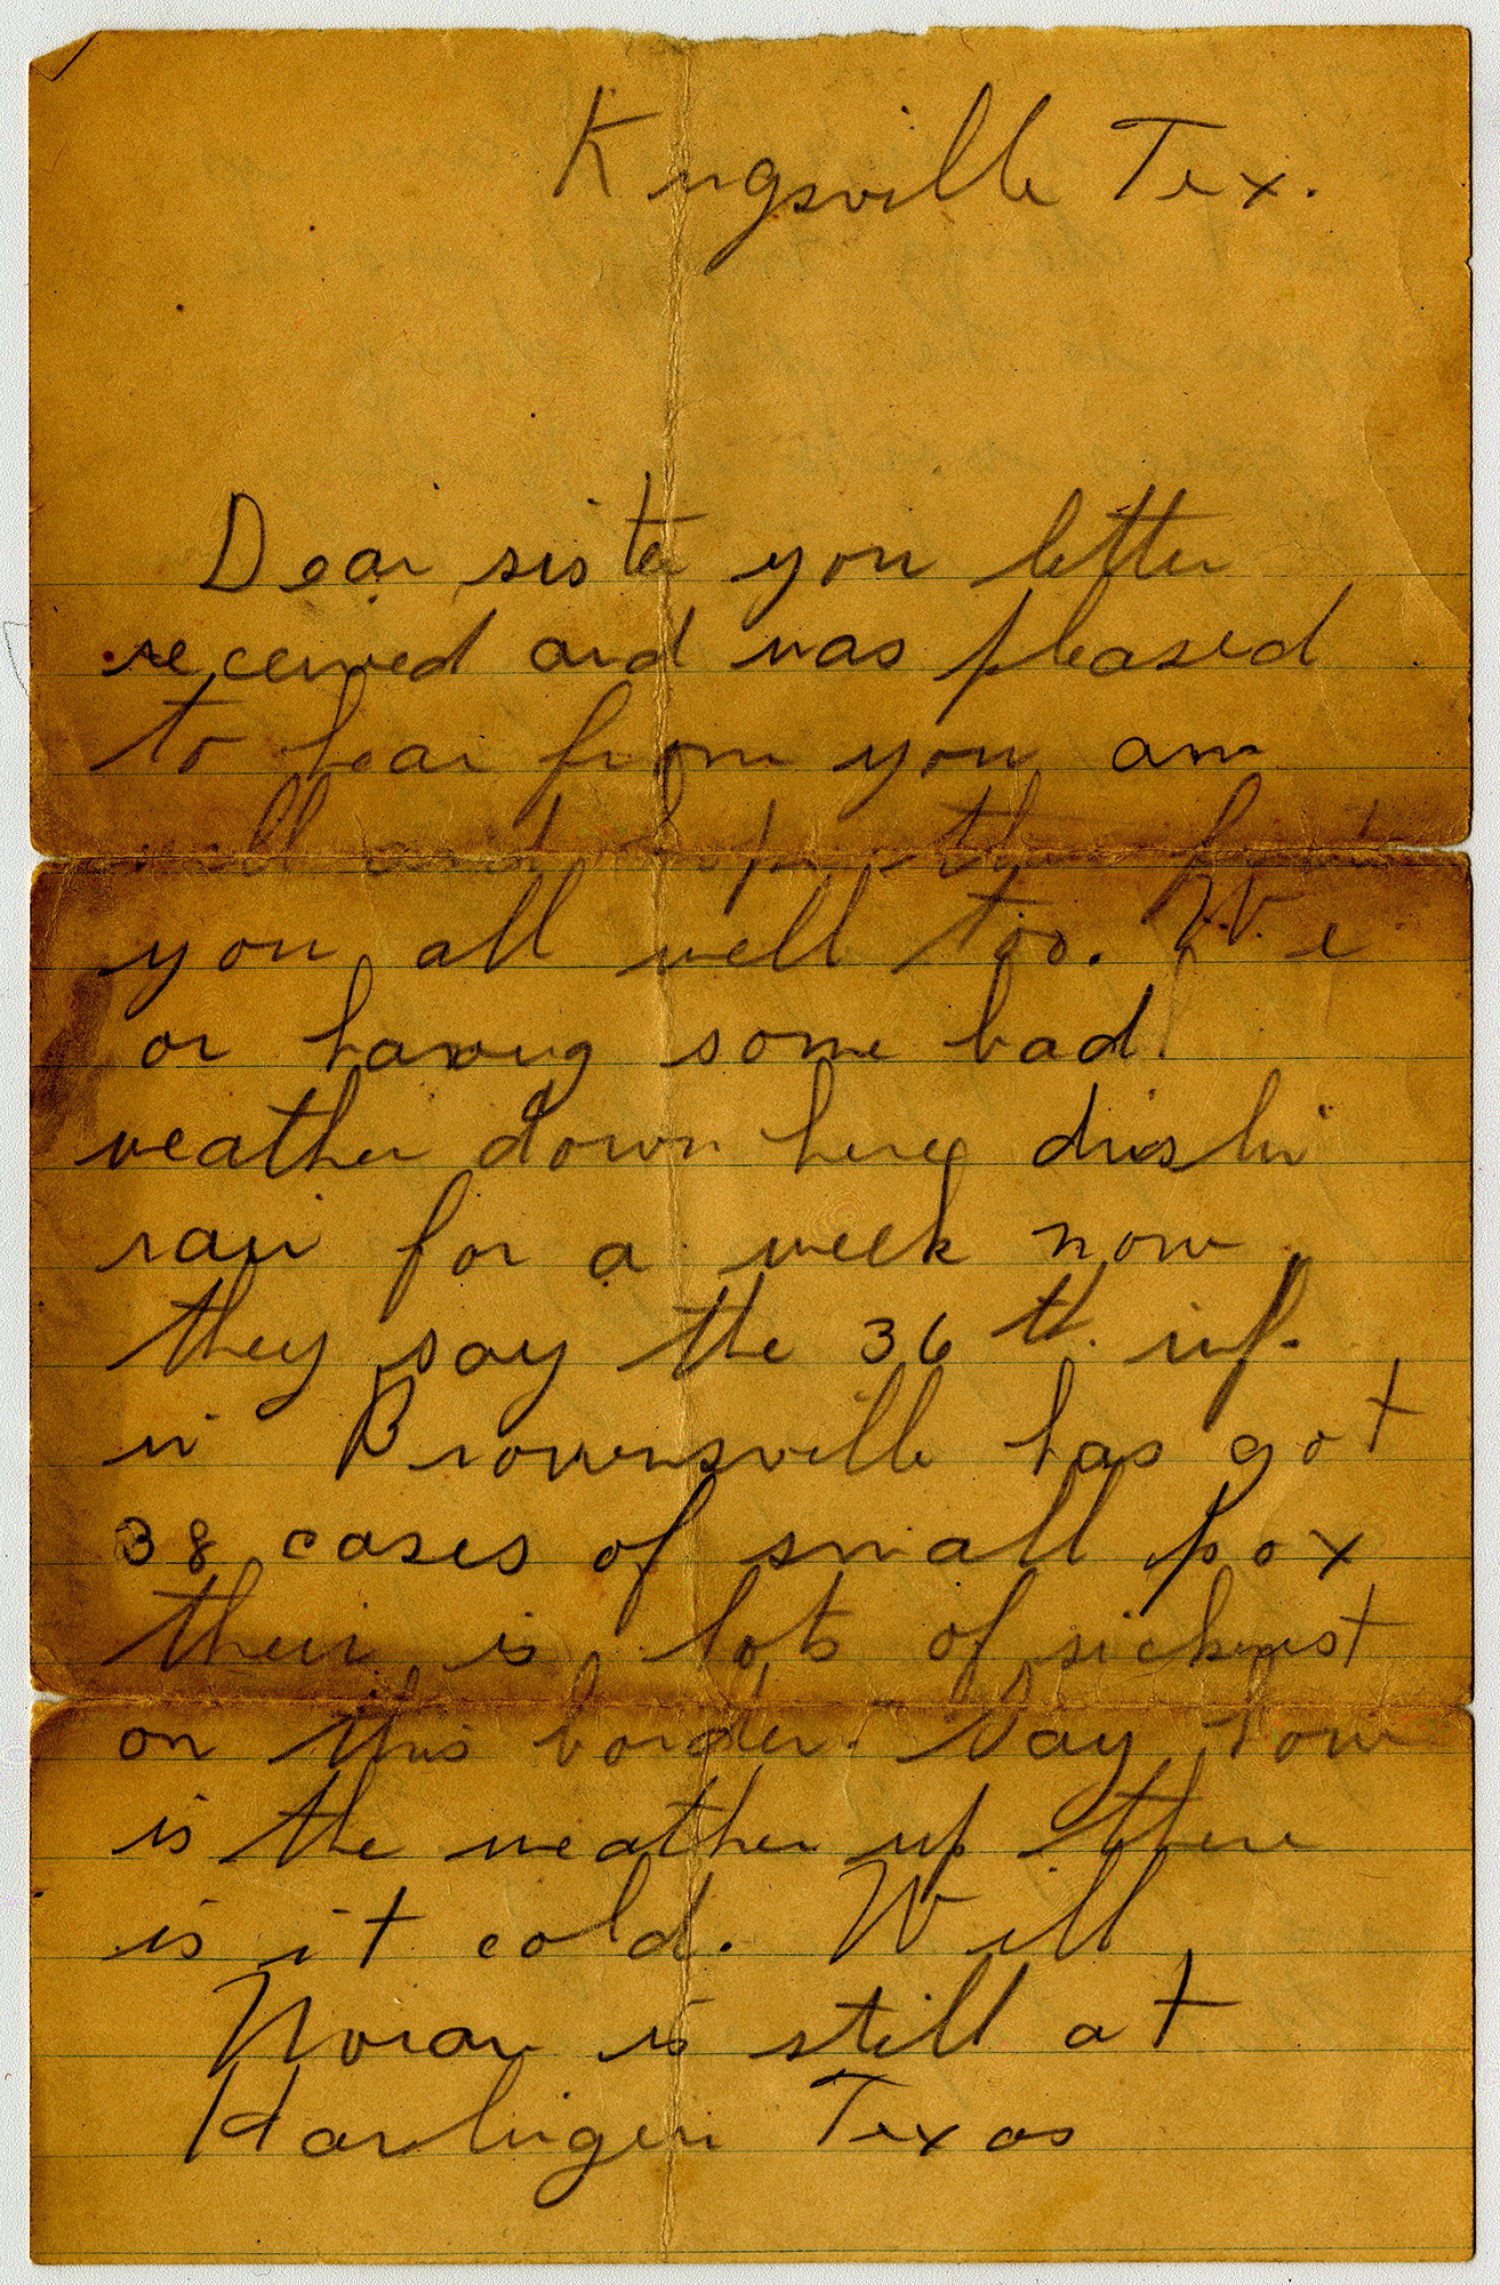 Kingsville Tex.
Dear sister you letter
received and was pleased
to hear from you am
well and hope this find
you all well too. We
or having some bad
weather down here drislin
rain for a week now
they say the 36 th. inf.
in Brownsville has got
38 cases of small pox
their is lots of sicknest
on this border. Say how
is the weather up there
is it cold. Will
is still at
Harlingen Texas